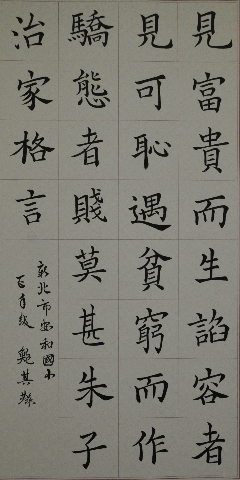 見富貴而生諂容者
見可恥遇貧窮而作
驕態者賤莫甚朱子
治家格言
新北市安和國小